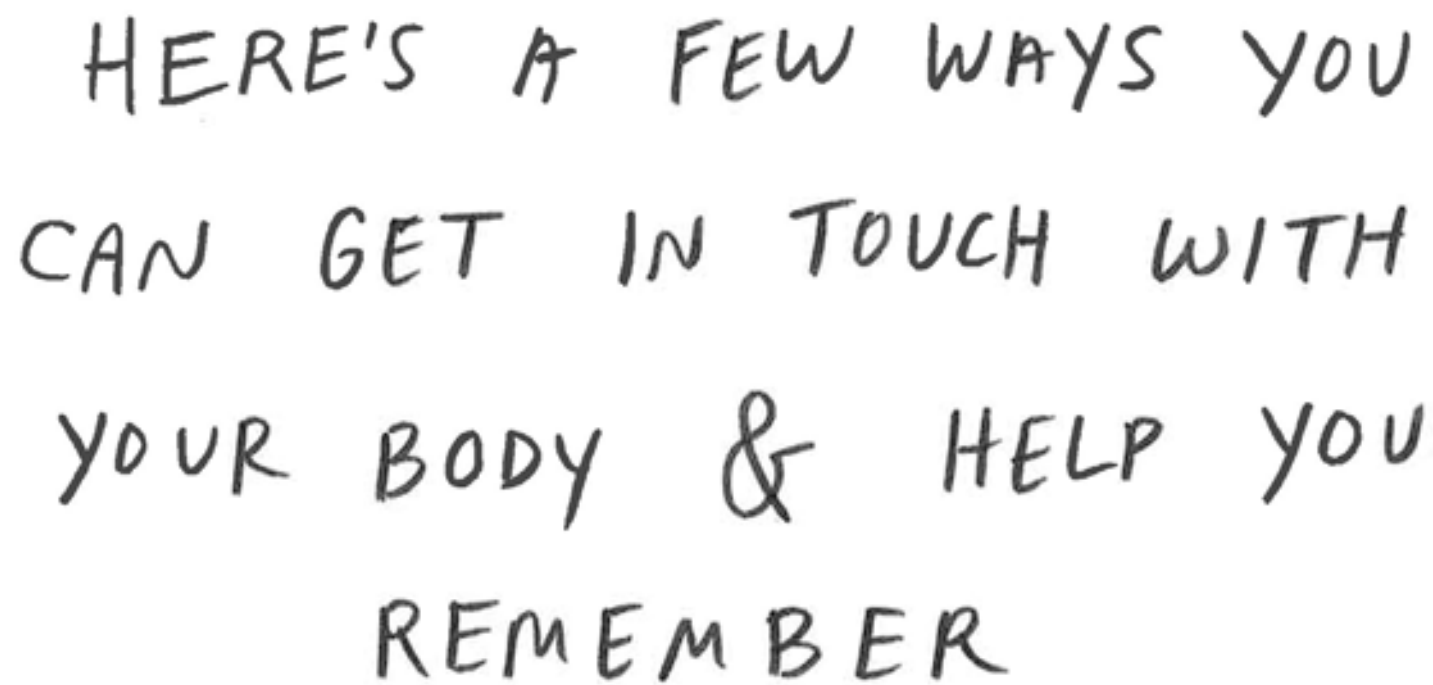 HERE'S A FEW WAYS YOU
CAN GET IN TOUCH WITH
YOUR BODY & HELP YOU
REMEMBER